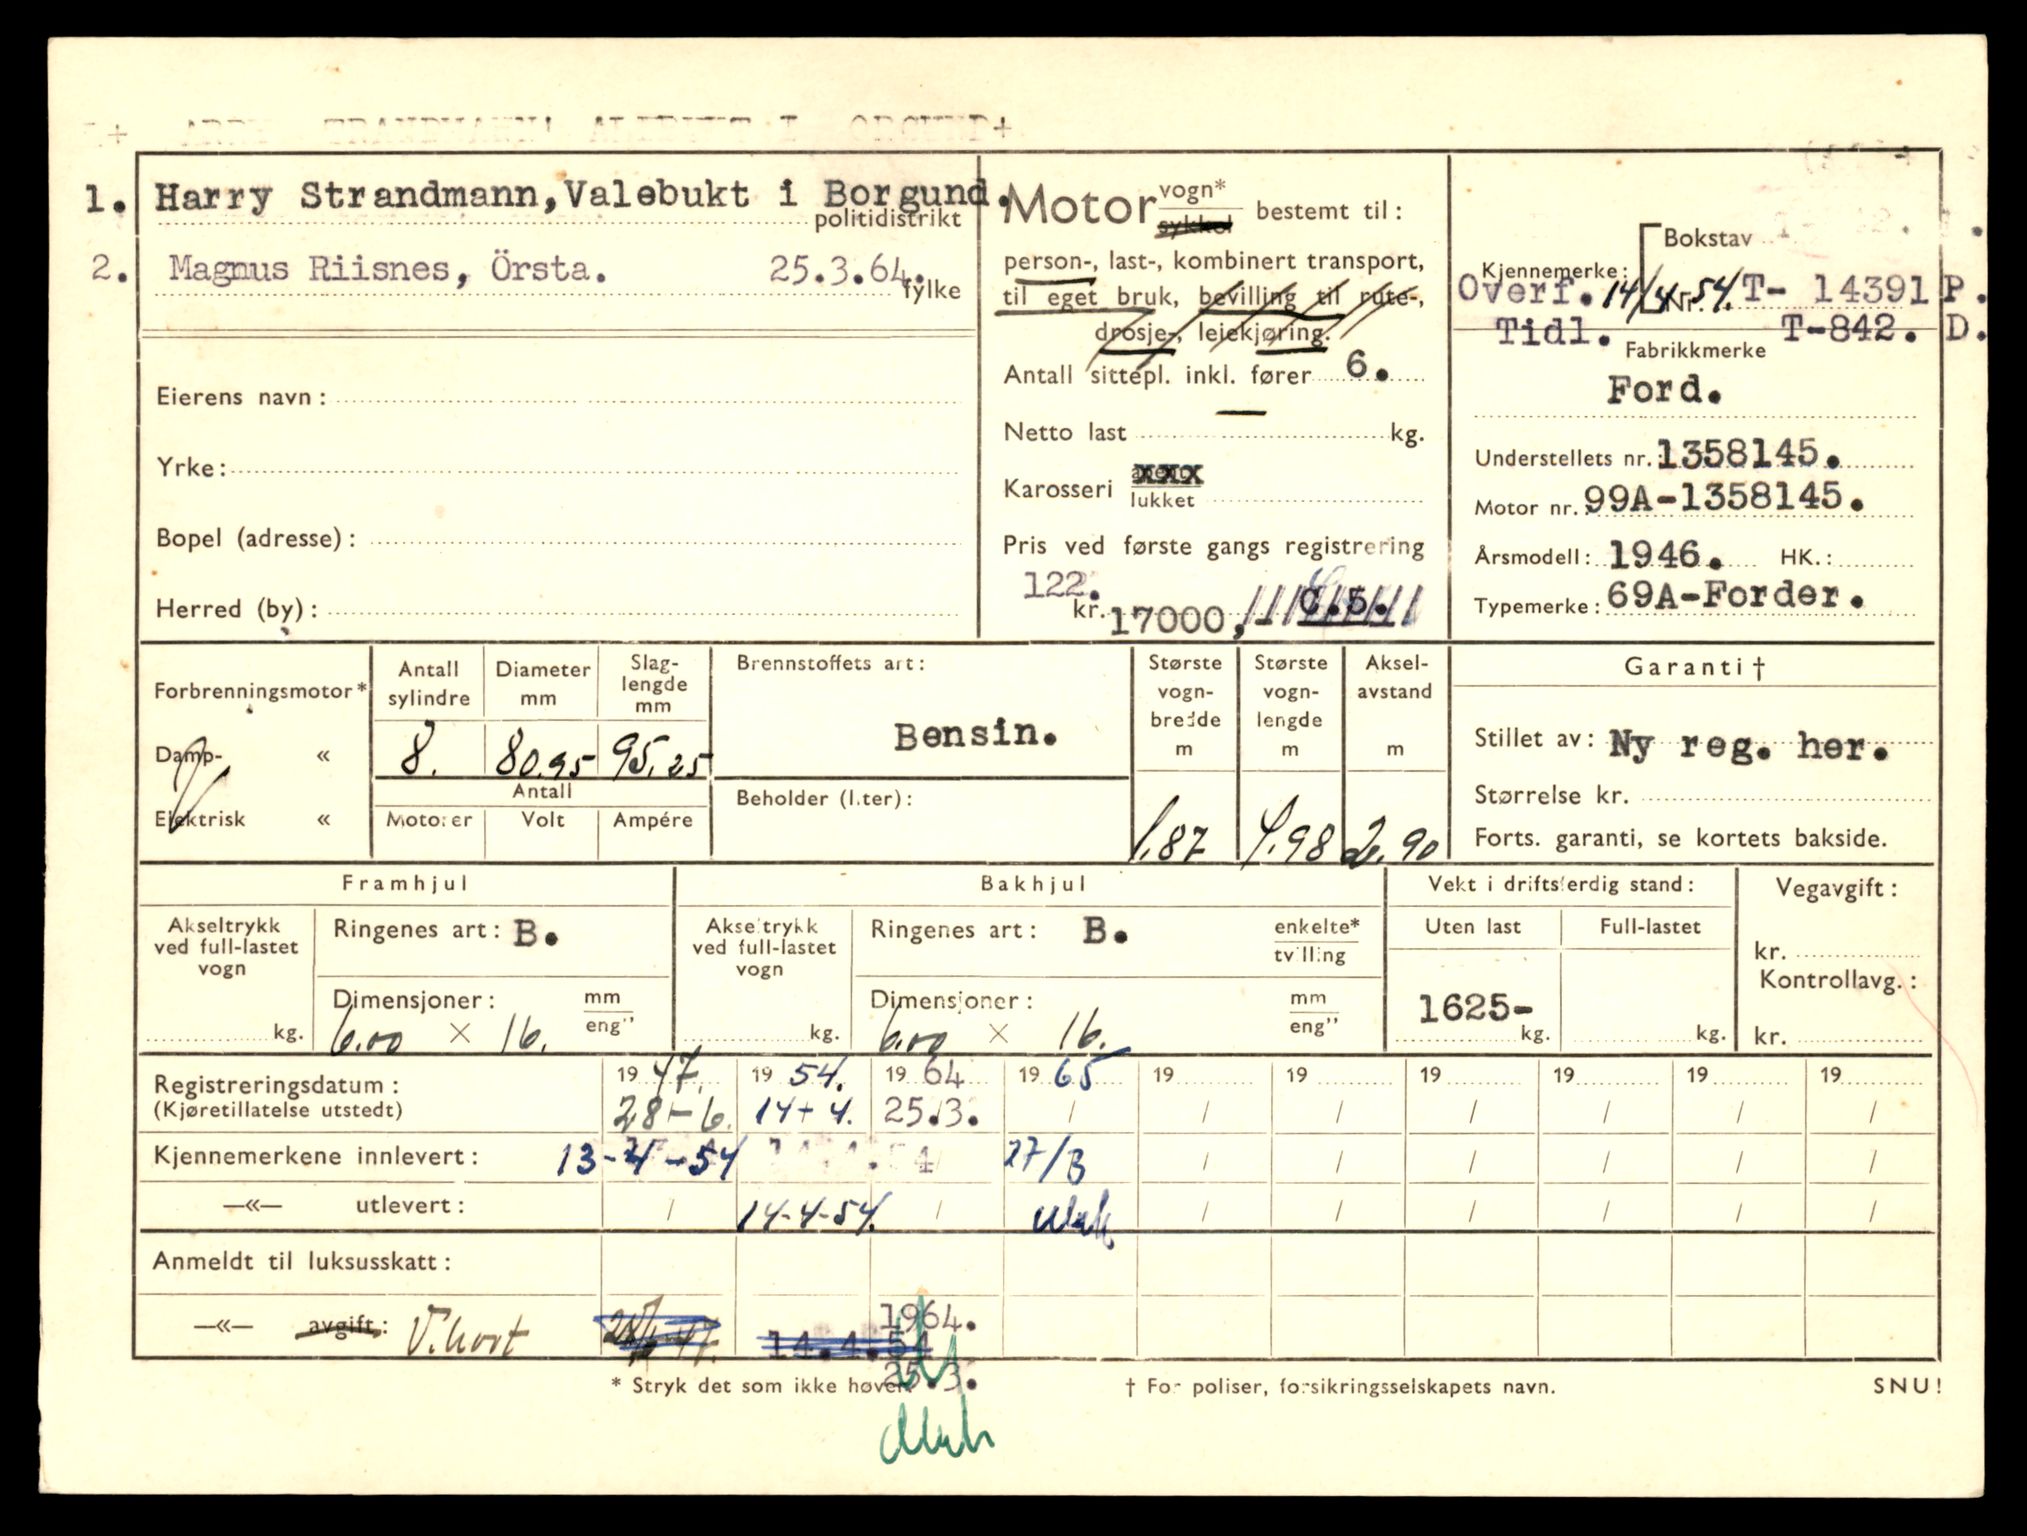 1. Harry Strandmann, Valebukt i Borgund.
politidistrikt
2. Magnus Riisnes, Örsta. 25.3.64.
fylke
Eierens navn:
Yrke:
Bopel (adresse):
Herred (by):
Motor vogn* sykkel bestemt til:
person-, last-, kombinert transport,
til eget bruk, bevilling til rute-,
drosje-, leiekjøring.
Antall sittepl. inkl. fører 6.
Netto last — kg.
Karosseri åpent xxx
lukket
Pris ved første gangs registrering
122.
kr. 17000,
Bokstav
Kjennemerke:
Overf. 14/4 54. Nr. T- 14391 P.
Tidl. T-842. D.
Fabrikkmerke
Ford.
Understellets nr. 1358145.
Motor nr. 99A-1358145.
Årsmodell: 1946. HK.:
Typemerke: 69A-Forder.
Forbrenningsmotor*
Damp- «
Elektrisk «
Antall sylindre
Diameter mm
Slag-lengde mm
8. 80.95 95.25
Antall
Motorer Volt Ampére
Brennstoffets art:
Bensin.
Beholder (liter):
Største vogn-bredde m
Største vogn-lengde m
Aksel-avstand m
1.87 4.98 2.90
Garanti †
Stillet av: Ny reg. her.
Størrelse kr.
Forts. garanti, se kortets bakside.
Framhjul
Akseltrykk ved full-lastet vogn
kg.
Ringenes art: B.
Dimensjoner: mm eng"
6.00 × 16.
Bakhjul
Akseltrykk ved full-lastet vogn
kg.
Ringenes art: B. enkelte* tvilling
Dimensjoner: mm eng"
6.00 × 16.
Vekt i driftsferdig stand:
Uten last Full-lastet
1625- kg. kg.
Vegavgift:
kr.
Kontrollavg.:
kr.
Registreringsdatum: 19 47. 19 54. 19 64 19 65 19 19 19 19 19 19
(Kjøretillatelse utstedt) 28-6. 14-4. 25.3.
Kjennemerkene innlevert: 13-4-54 27/3
—«— utlevert: 14-4-54.
Anmeldt til luksusskatt:
—«— avgift: V.kort 14.4.54 1964.
25.3.
* Stryk det som ikke høver.
† For poliser, forsikringsselskapets navn.
SNU!